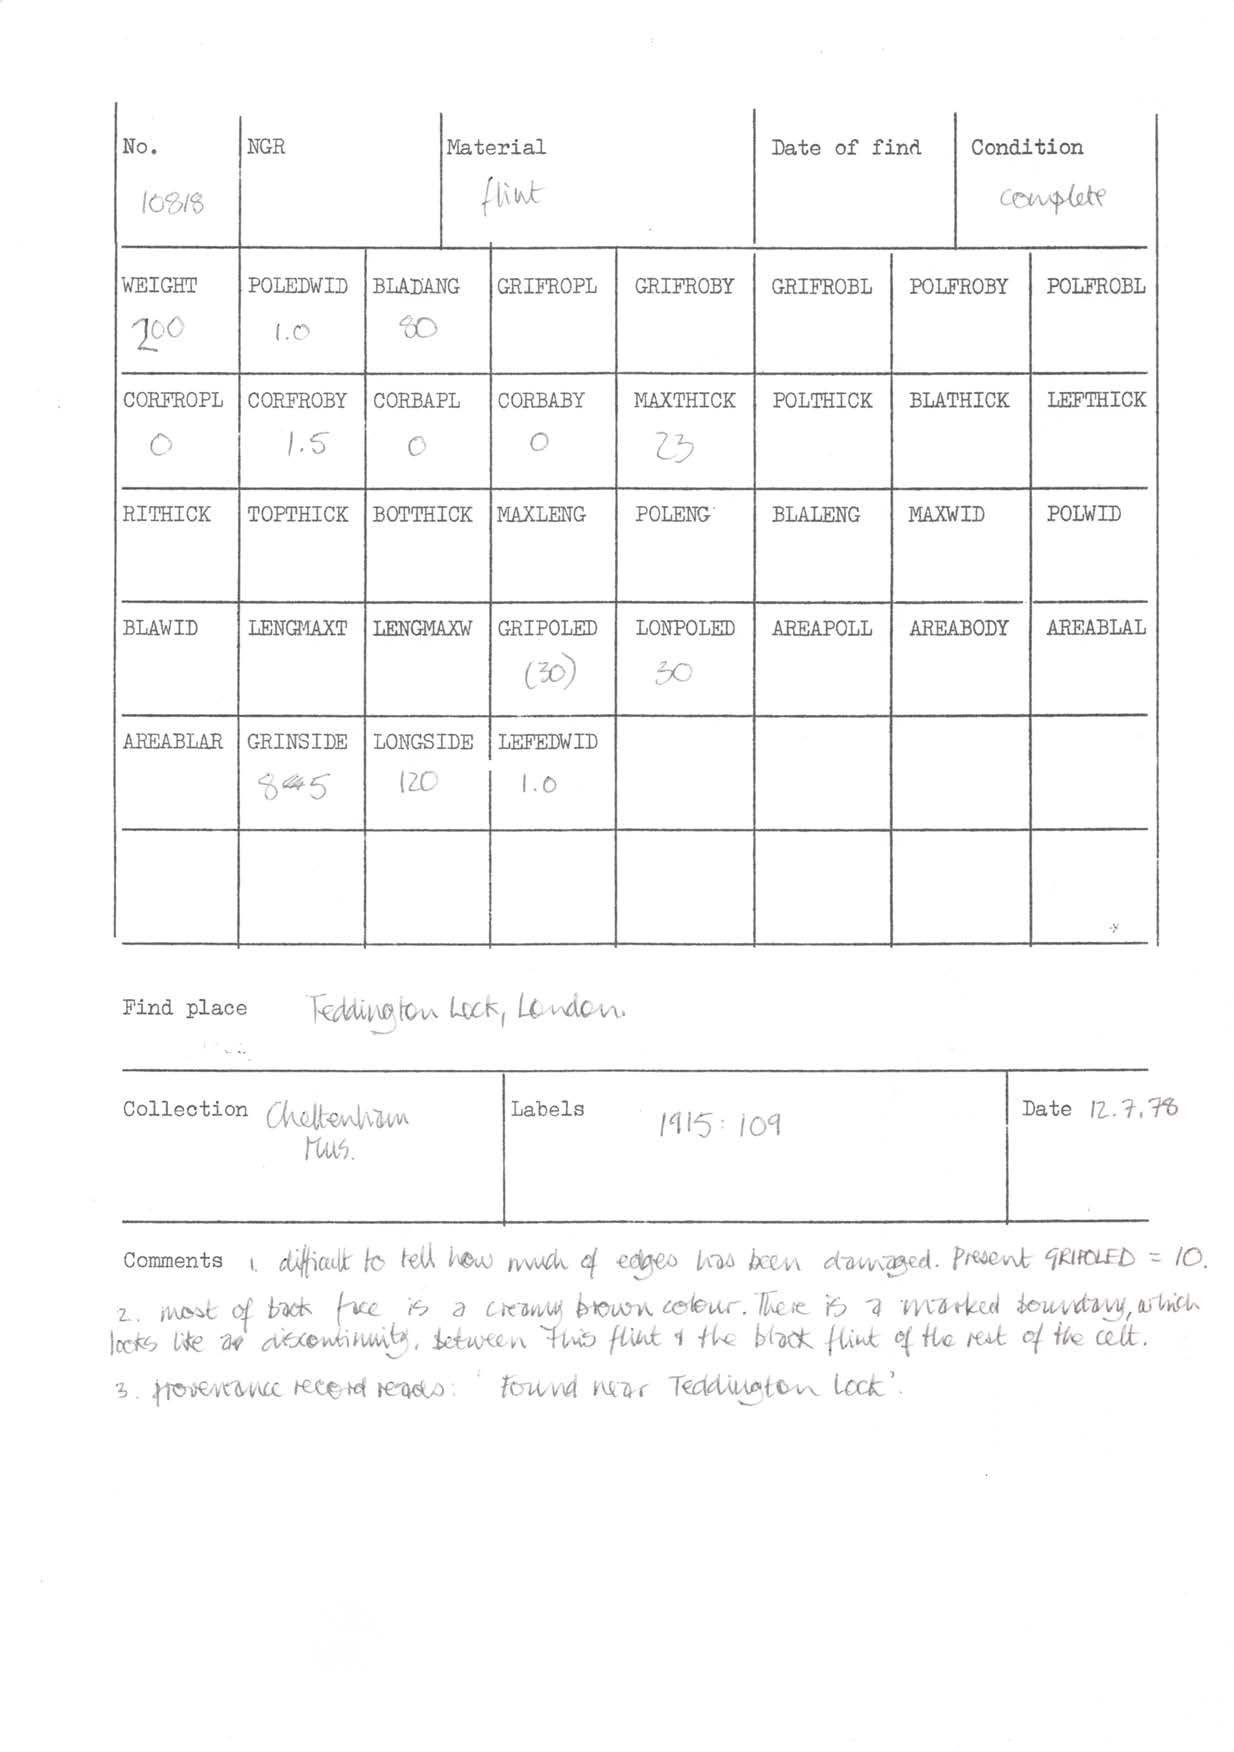 No. NGR Material Date of find Condition
10818 flint complete
WEIGHT POLEDWID BLADANG GRIFROPL GRIFROBY GRIFROBL POLFROBY POLFROBL
200 1.0 80
CORFROPL CORFROBY CORBAPL CORBABY MAXTHICK POLTHICK BLATHICK LEFTHICK
0 1.5 0 0 23
RITHICK TOPTHICK BOTTHICK MAXLENG POLENG BLALENG MAXWID POLWID
BLAWID LENGMAXT LENGMAXW GRIPOLED LONPOLED AREAPOLL AREABODY AREABLAL
(30) 30
AREABLAR GRINSIDE LONGSIDE LEFEDWID
85 120 1.0
Find place Teddington Lock, London.
Collection Cheltenham Labels 1915:109 Date 12.7.78
Mus.
Comments 1. difficult to tell how much of edges has been damaged. Present GRIPOLED = 10.
2. most of back face is a creamy brown colour. There is a marked boundary, which
looks like a discontinuity, between this flint & the black flint of the rest of the celt.
3. provenance record reads: 'Found near Teddington Lock'.